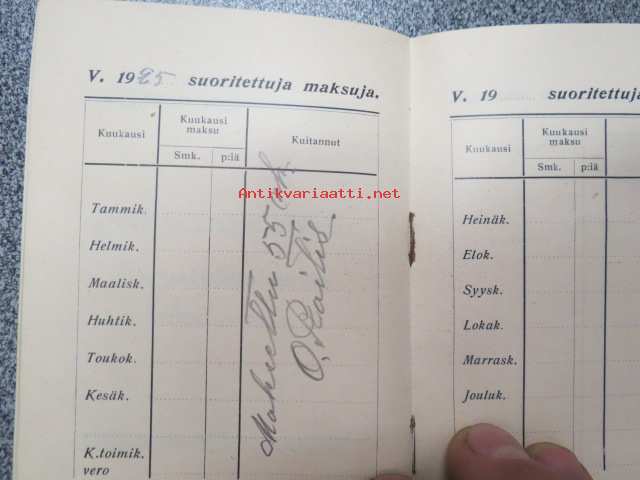 V. 1925 suoritettuja maksuja.
Kuukausi
Kuukausi
maksu
Kuitannut
Smk. p:iä
Tammik.
Helmik.
Maalisk.
Huhtik.
Toukok.
Kesäk.
K.toimik.
vero
Maksettu 55 mk.
Antikvariaatti.net
V. 19 suoritettuja
Kuukausi
Kuukausi
maksu
Smk. p:iä
Heinäk.
Elok.
Syysk.
Lokak.
Marrask.
Jouluk.